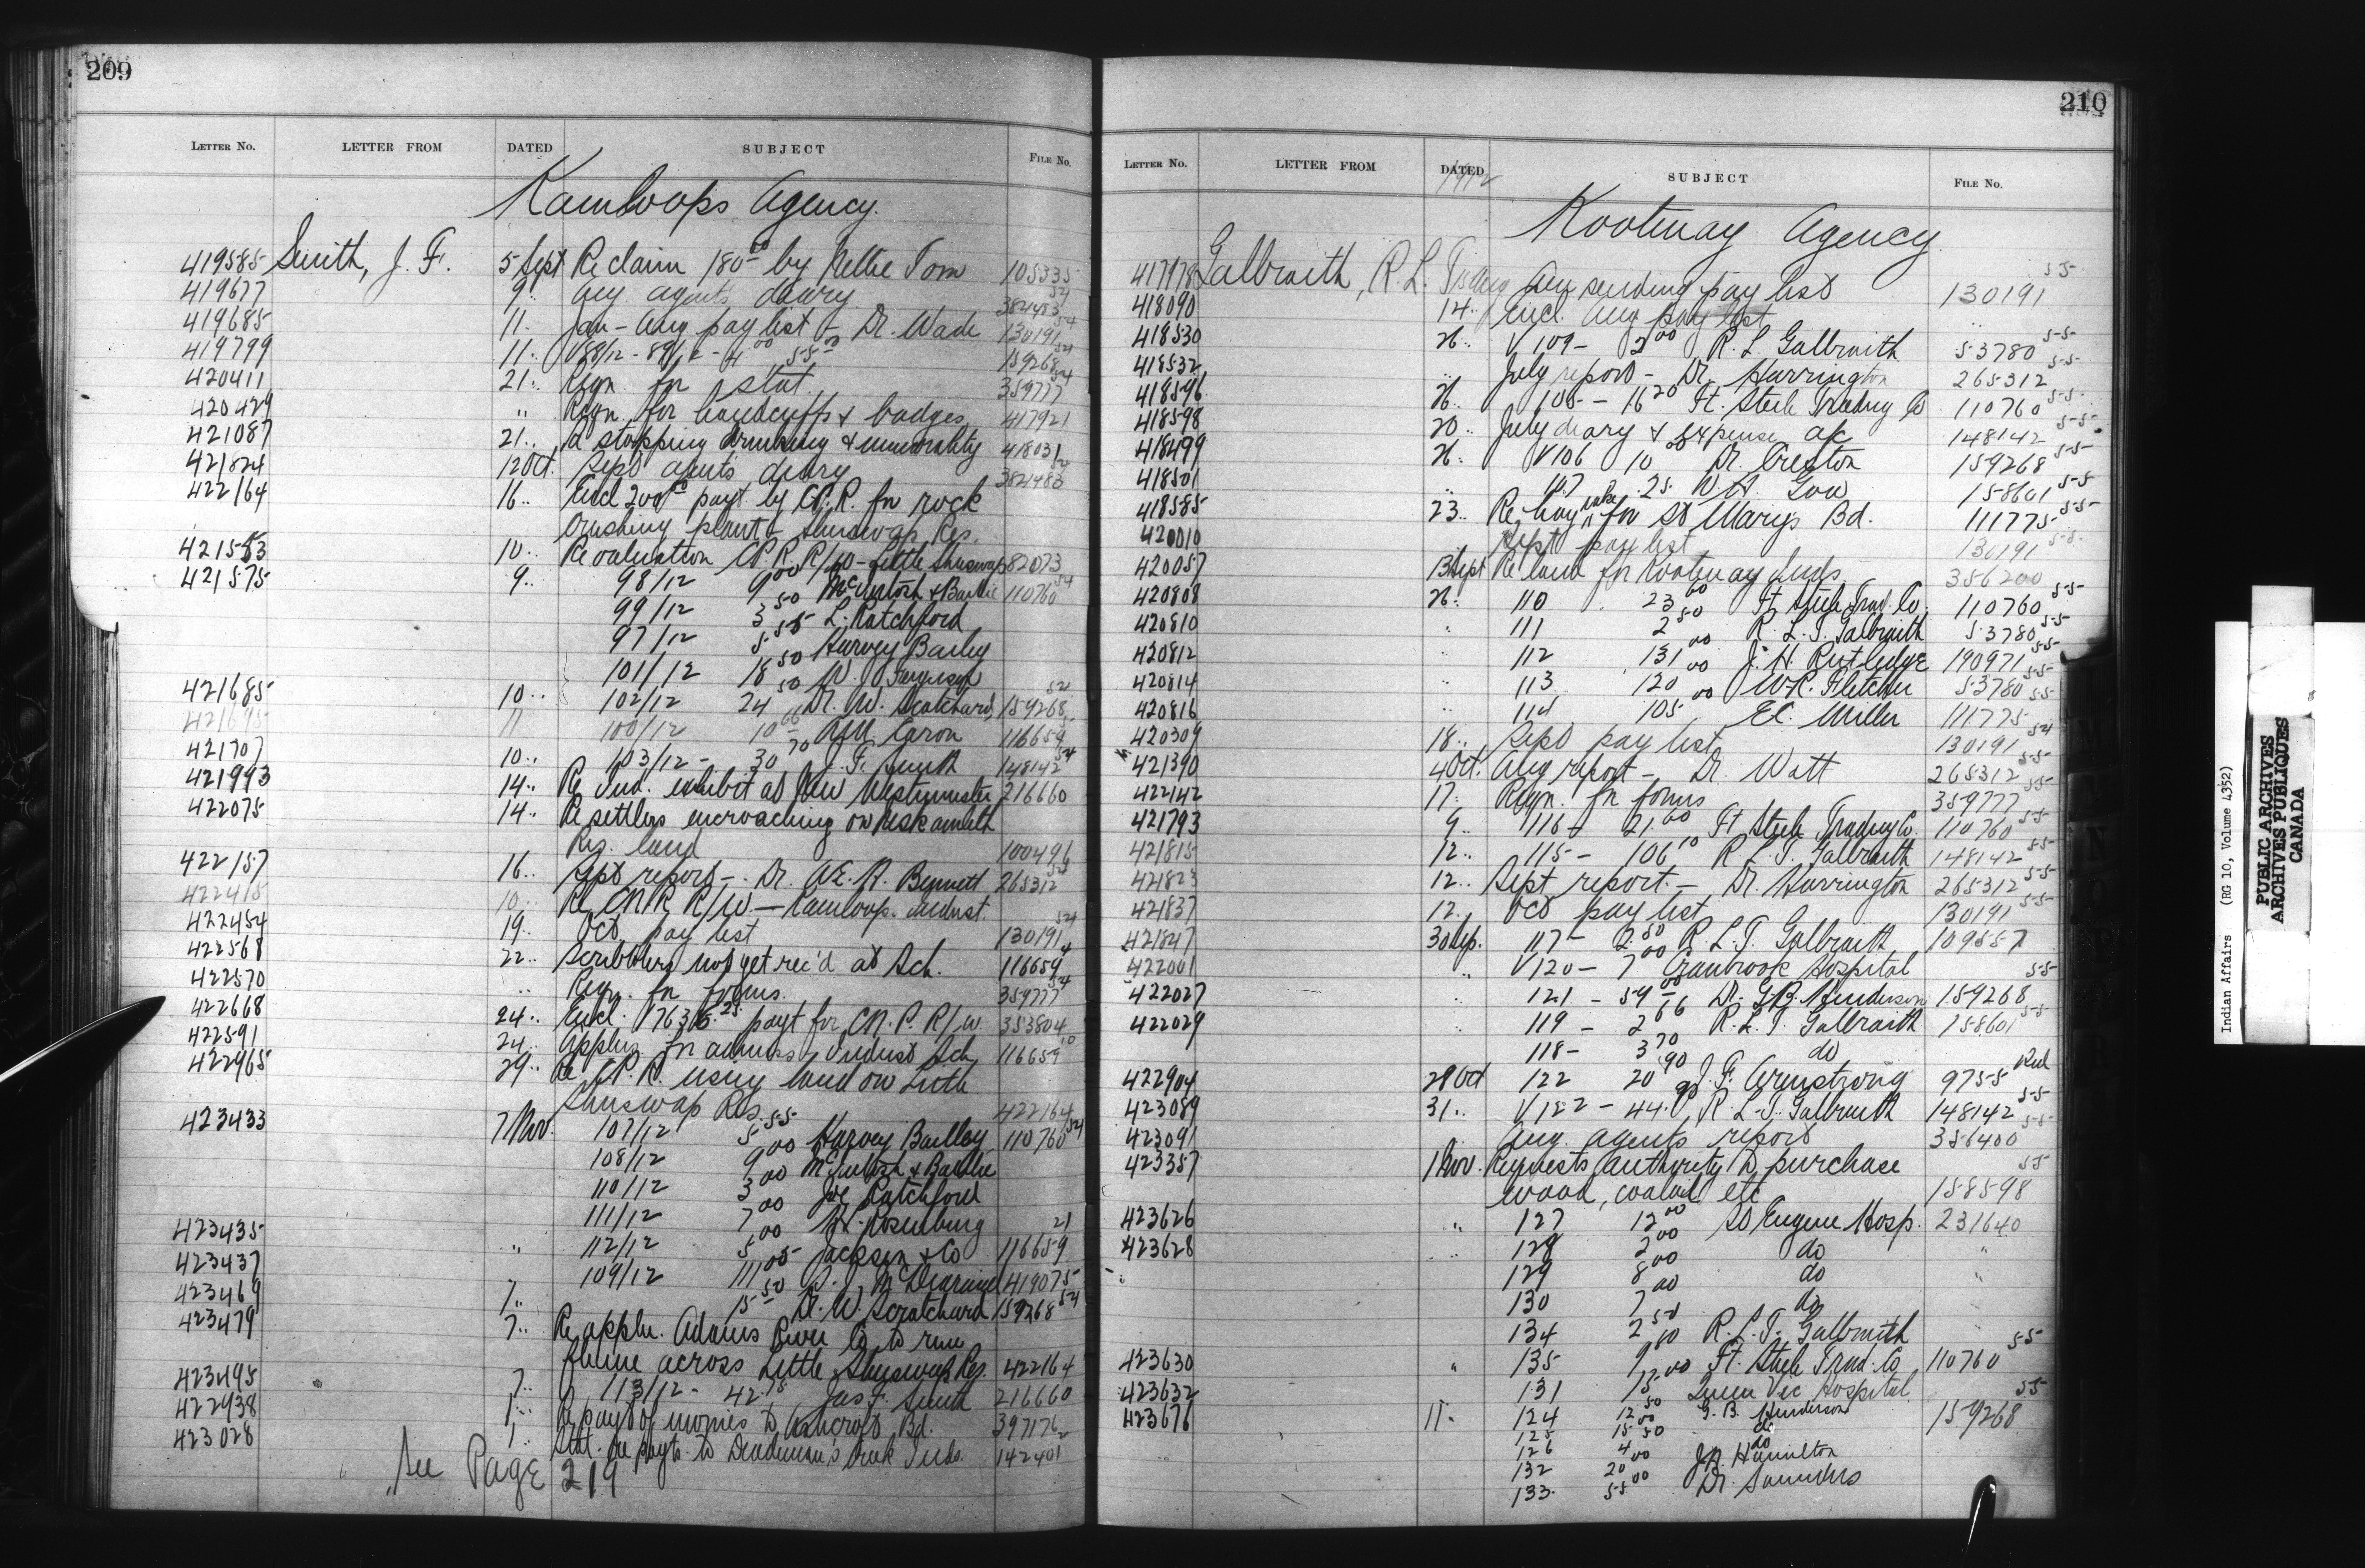 209
LETTER NO. LETTER FROM DATED SUBJECT FILE NO.
Kamloops Agency.
419585 Smith, J. F. 5 Sept Re claim 180 00 by Nellie Tom 105335
419677 9 " Aug. agents diary 382483 54
419685 11. Jan - Aug pay list - Dr. Wade 130191 54
419799 11 " V 88/12 - 89/12 - 4 00 5 50 159268 54
420411 21 " Reqn. for stat. 359777 54
420429 " Reqn. for handcuffs & badges 417921
421087 21 " Re stopping drinking & immorality 418031
421824 12 Oct. Sept agents diary 382483 54
422164 16 " Encl 200 00 payt by C.P.R. for rock
crushing plant - Shuswap Res.
421553 10 " Re valuation C.P.R. R/W - Little Shuswap 82073
421575 9 " 98/12 9 00 McIntosh & Bailie 110760 54
99/12 3 50 L. Ratchford
97/12 5 55 Harvey Bailey
101/12 18 50 W. J. Ferguson
421685 10 " 102/12 24 50 Dr. W. Scratchard 159268 54
421695 11 100/12 10 00 A.M. Caron 116659
421707 10 " 103/12 - 30 70 J. F. Smith 148142 54
421993 14 " Re Ind. exhibit at New Westminster 216660
422075 14 " Re settlers encroaching on Neskainlith
Res. land 100496
422157 16 " Sept report - Dr. A.E. H. Bennett 265312 54
422415 10 " Re C.N.R. R/W - Kamloops Indust.
422454 19 " Oct pay list 130191 54
422568 22 " Scribblers not yet rec'd at Sch. 116659
422570 " Reqn. for forms. 359777 54
422668 24 " Encl. 17636.25 payt for C.N.P. R/W. 353804
422591 24 " Applns for admiss. Indust Sch 116659
422965 29 " Re C.P.R. using land on Little
Shuswap Res. 422164
423433 7 Nov. 107/12 5.55 Harvey Bailey 110760 54
108/12 9 00 McIntosh & Bailie
110/12 3 00 Joe Ratchford
111/12 7 00 H. Rosenburg
423435 " 112/12 5 00 Jackson & Co 116659 21
423437 109/12 111 05 419075
423469 7 " 15 50 Dr. W. Scratchard 159268 54
423479 7 " Re appln. Adams River Co to run
flume across Little Shuswap Res. 422164
423495 7 " 113/12 - 42.75 Jas F. Smith 216660
422938 1 " Re payt of monies to Ashcroft Bd. 397176
423028 1 " Stat. re payts to Deadman's Creek Inds. 142401
See Page 219
210
LETTER NO. LETTER FROM DATED SUBJECT FILE NO.
1912
Kootenay Agency
417978 Galbraith, R. L. T. Aug sending pay list 130191 55
418090 14 " Encl. Aug pay list "
418530 26 " V 109 - 2 00 R. L. Galbraith 53780 55
418532 " July report - Dr. Harrington 265312 55
418596 26 " 105 - 16 20 Ft. Steele Trading Co 110760 55
418598 20 " July diary & expense a/c 148142 55
418499 26 " V 106 10 00 Dr. Creston 159268 55
418501 " 107 25 W. A. Gow 158601 55
418585 23 " Re hay rake for St Mary's Bd. 111775 55
420010 Sept pay list 130191 55
420057 13 Sept Re land for Kootenay Inds 356200
420808 26 " 110 23 00 Ft Steele Trad. Co. 110760 55
420810 " 111 2 50 R. L. T. Galbraith 53780 55
420812 " 112 131 00 J. H. Rutledge 190971 55
420814 " 113 120 00 W.R. Fletcher 53780 55
420816 " 114 105 00 E.C. Miller 111775
420309 18 " Sept pay list 130191 54
421390 4 Oct. Aug report - Dr. Watt 265312 55
422142 17 " Reqn. for forms 359777 55
421793 9 " 116 - 21.00 Ft Steele Trading Co. 110760 55
421815 12 " 115 - 106 10 R. L. T. Galbraith 148142 55
421823 12 " Sept report. - Dr. Harrington 265312 55
421837 12 " Oct pay list 130191 55
421847 30 Sep. 117 - 2.50 R. L. T. Galbraith 109557
422001 " V 120 - 7 00 Cranbrook Hospital 55
422027 " 121 - 59 00 Dr. G.B. Henderson 159268
422029 " 119 - 2 66 R. L. T. Galbraith 158601 55
118 - 3 70 do
422904 29 Oct 122 20 90 J. F. Armstrong 9755 Red
423089 31 " V 122 - 44. R. L. T. Galbraith 148142 55
423091 Aug. agents report 356400 55
423357 1 Nov. Requests authority to purchase
wood, coaloil etc 158598 55
423626 " 127 12 00 St Eugene Hosp. 231640
423628 " 128 2 00 do "
129 8 00 do
130 7 00 do
134 2 50 R. L. T. Galbraith
423630 " 135 9 80 Ft. Steele Trad. Co 110760 55
423632 131 15 00 Queen Vic Hospital
423676 11 " 124 12 50 G. B. Henderson 159268 55
125 15 00 do
126 4 50 do
132 20 00 J.H. Hamilton
133 55 00 Dr. Saunders
Indian Affairs (RG 10, Volume 4352)
PUBLIC ARCHIVES
ARCHIVES PUBLIQUES
CANADA